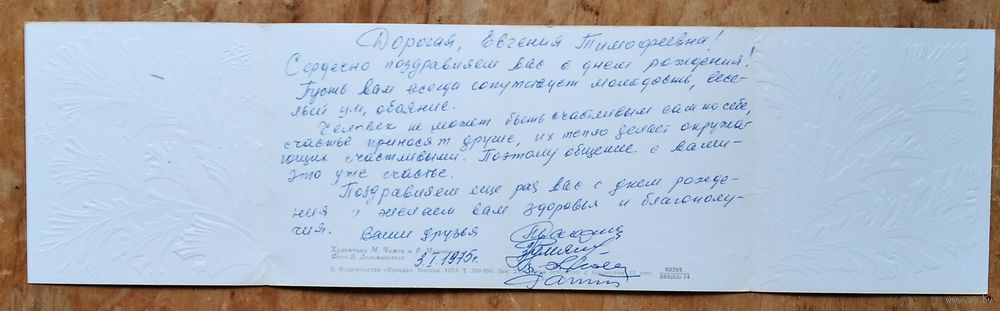 Дорогая, Евгения Тимофеевна!
Сердечно поздравляем вас с днем рождения!
Пусть вам всегда сопутствует молодость, весе-
лый ум, обаяние.
Человек не может быть счастливым сам по себе,
счастье приносят другие, их тепло делает окружа-
ющих счастливыми. Поэтому общение с вами-
это уже счастье.
Поздравляем еще раз вас с днем рожде-
ния и желаем вам здоровья и благополу-
чия.
Ваши друзья
Художники М. Чижов и Р.
Фото В.
3/I 1975г.
© Издательство «Правда». Москва. 1974 Т. 300 000.
80265
060(02)-74
ay.by